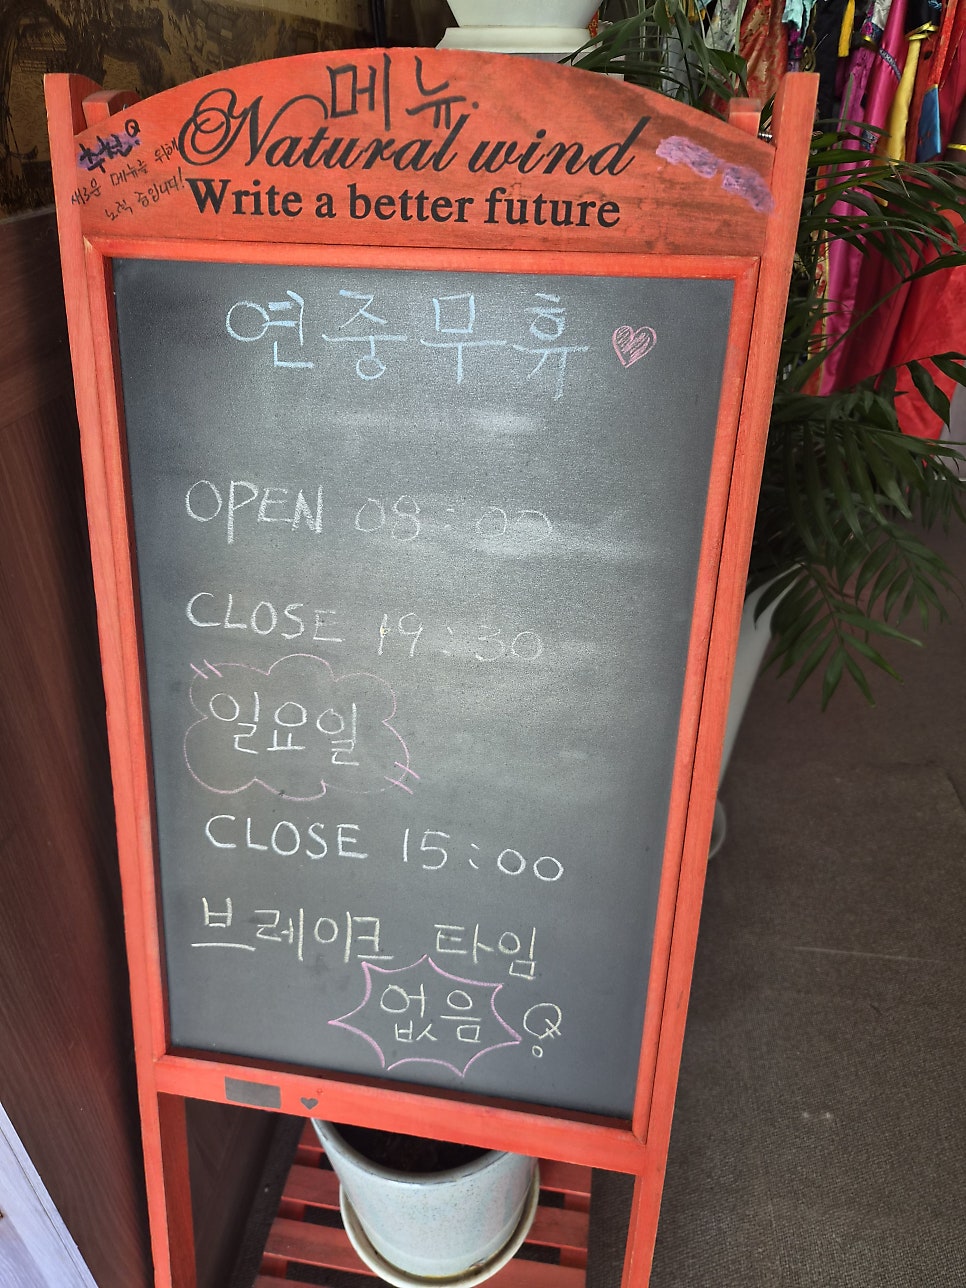 메뉴
Natural wind
Write a better future
새로운 메뉴를 위해
노력 중입니다!
연중무휴
OPEN 08:00
CLOSE 19:30
일요일
CLOSE 15:00
브레이크 타임
없음